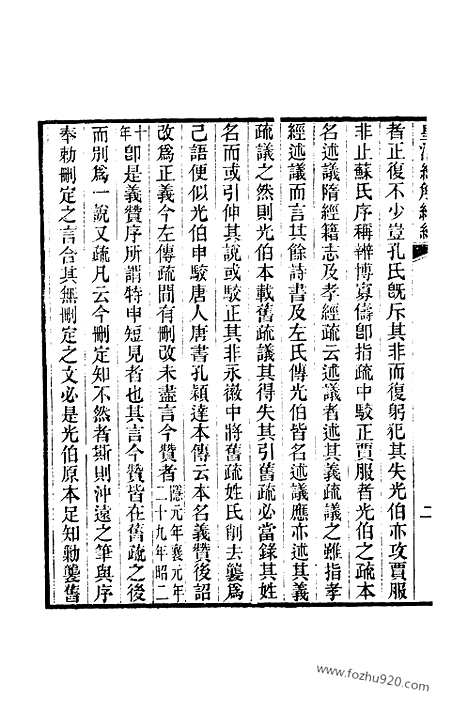 皇清經解續編
二
者正復不少豈孔氏旣斥其非而復躬犯其失光伯亦攻賈服
非止蘇氏序稱辨博寡儔卽指疏中駁正賈服者光伯之疏本
名述議隋經籍志及孝經疏云述議者述其義疏議之雖指孝
經述議而言其餘詩書及左氏傳光伯皆名述議應亦述其義
疏議之然則光伯本載舊疏議其得失其引舊疏必當錄其姓
名而或引伸其說或駁正其非永徽中將舊疏姓氏削去襲爲
己語便似光伯申駁唐人唐書孔穎達本傳云本名義贊後詔
改爲正義今左傳疏間有刪改未盡言今贊者隱元年襄元年二十九年昭二
十年卽是義贊序所謂特申短見者也其言今贊皆在舊疏之後
而別爲一說又疏凡云今刪定知不然者斯則沖遠之筆與序
奉勅刪定之言合其無刪定之文必是光伯原本足知勦襲舊
www.fozhu920.com